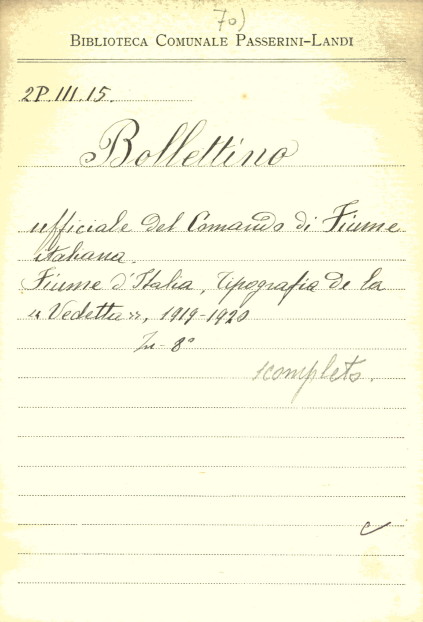 70)
BIBLIOTECA COMUNALE PASSERINI-LANDI
2P.III.15.
Bollettino
ufficiale del Comando di Fiume
italiana.
Fiume d'Italia, Tipografia de la
"Vedetta", 1919-1920
In-8°
scompleto.